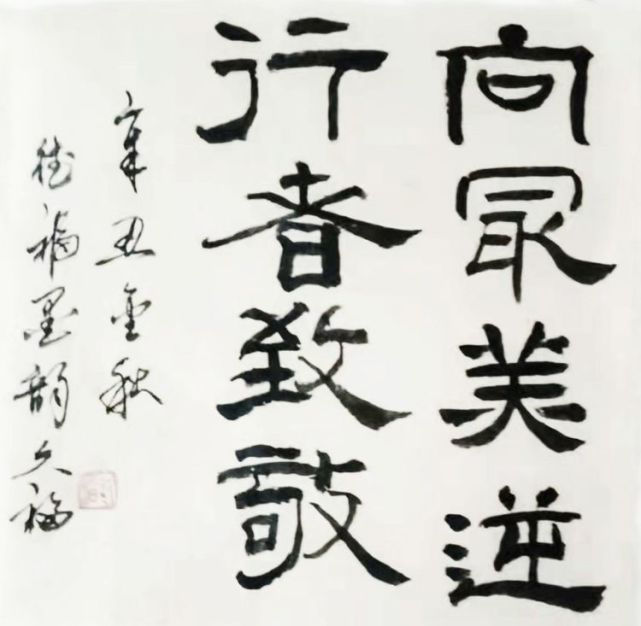 向冣美逆
行者致敬
辛丑金秋
德福墨韵久福